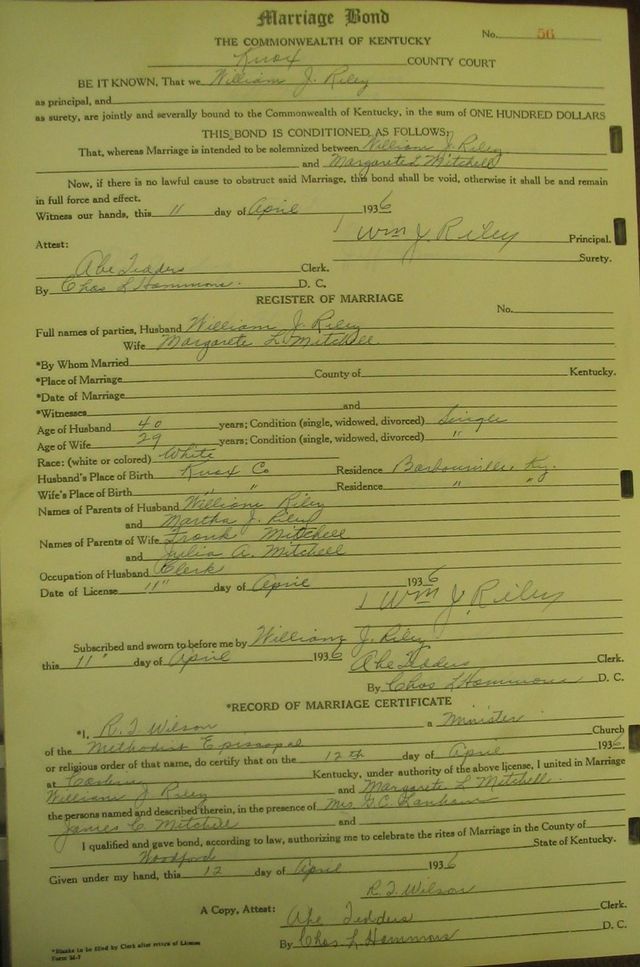 Marriage Bond
No. 56
THE COMMONWEALTH OF KENTUCKY
Knox COUNTY COURT
BE IT KNOWN, That we William J. Riley
as principal, and
as surety, are jointly and severally bound to the Commonwealth of Kentucky, in the sum of ONE HUNDRED DOLLARS
THIS BOND IS CONDITIONED AS FOLLOWS:
That, whereas Marriage is intended to be solemnized between William J. Riley
and Margarete L Mitchell
Now, if there is no lawful cause to obstruct said Marriage, this bond shall be void, otherwise it shall be and remain
in full force and effect.
Witness our hands, this 11 day of April 1936
Wm J. Riley Principal.
Attest: Surety.
Abe Tedders Clerk.
By Chas L Hammons. D. C.
REGISTER OF MARRIAGE
No.
Full names of parties, Husband William J. Riley
Wife Margarete L. Mitchell
*By Whom Married
*Place of Marriage County of Kentucky.
*Date of Marriage
*Witnesses and
Age of Husband 40 years; Condition (single, widowed, divorced) Single
Age of Wife 29 years; Condition (single, widowed, divorced) "
Race: (white or colored) White
Husband's Place of Birth Knox Co Residence Barbourville, Ky.
Wife's Place of Birth " " Residence " "
Names of Parents of Husband William Riley
and Martha J. Riley
Names of Parents of Wife Frank Mitchell
and Julia A. Mitchell
Occupation of Husband Clerk
Date of License 11" day of April 1936
Wm J. Riley
Subscribed and sworn to before me by William J. Riley
this 11" day of April 1936 Abe Tedders Clerk.
By Chas L Hammons D. C.
*RECORD OF MARRIAGE CERTIFICATE
*I, R. T. Wilson a Minister
of the Methodist Episcopal Church
or religious order of that name, do certify that on the 12th day of April 1936
at Kentucky, under authority of the above license, I united in Marriage
William J Riley and Margarete L Mitchell.
the persons named and described therein, in the presence of Mrs. G.C. Lanham
James C. Mitchell and
I qualified and gave bond, according to law, authorizing me to celebrate the rites of Marriage in the County of
Woodford State of Kentucky.
Given under my hand, this 12 day of April 1936
R. T. Wilson
A Copy, Attest: Abe Tedders Clerk.
By Chas L. Hammons D. C.
*Blanks to be filed by Clerk after return of License
Form M-7